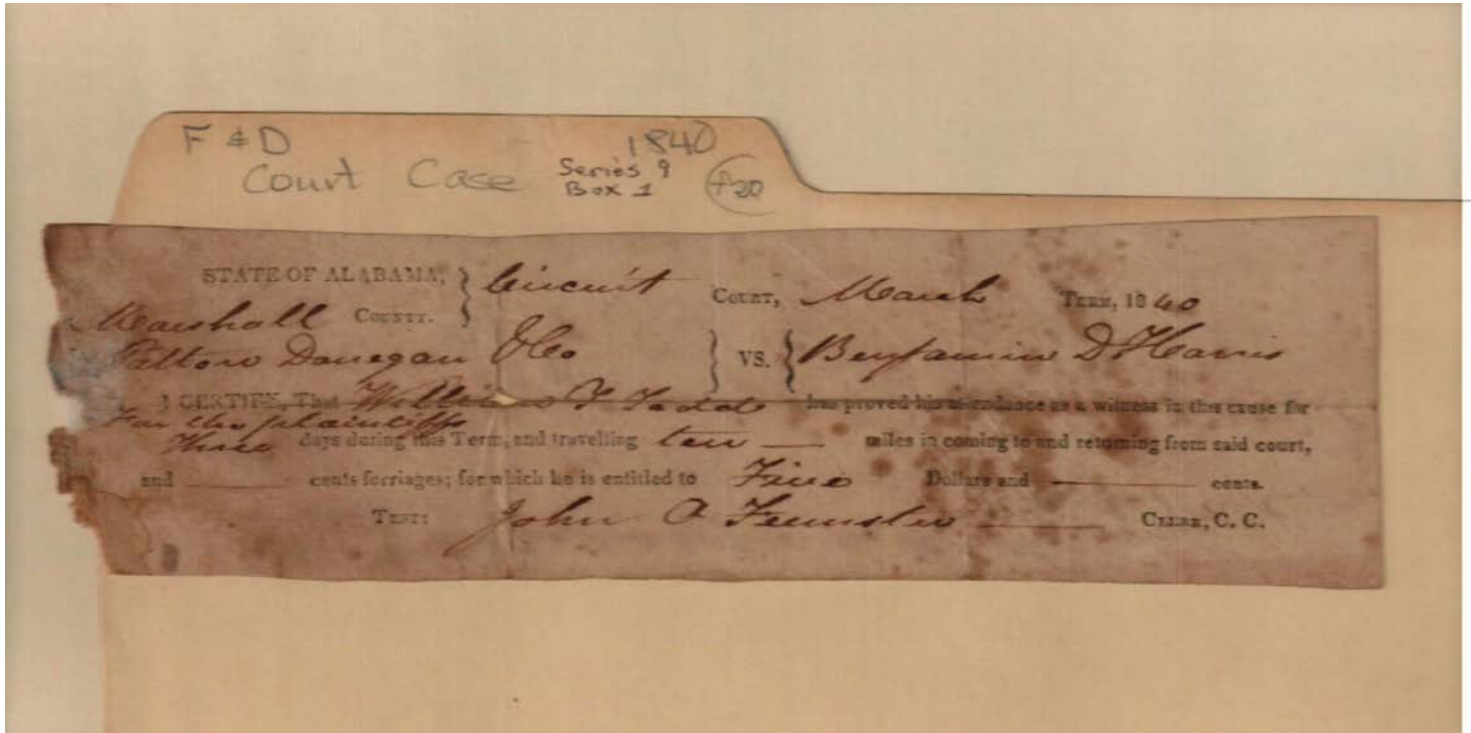 F & D 1840
Court Case Series 9
Box 1
STATE OF ALABAMA, } Circuit COURT, March TERM, 1840
Marshall COUNTY. }
Patton Donegan & Co } VS. { Benjamin D Harris
I CERTIFY, That William T Ladd has proved his attendance as a witness in this cause for
For the plaintiffs
Three days during this Term, and travelling ten — miles in coming to and returning from said court,
and — cents ferriages; for which he is entitled to Five Dollars and — cents.
TEST: John A Feemster — CLERK, C. C.